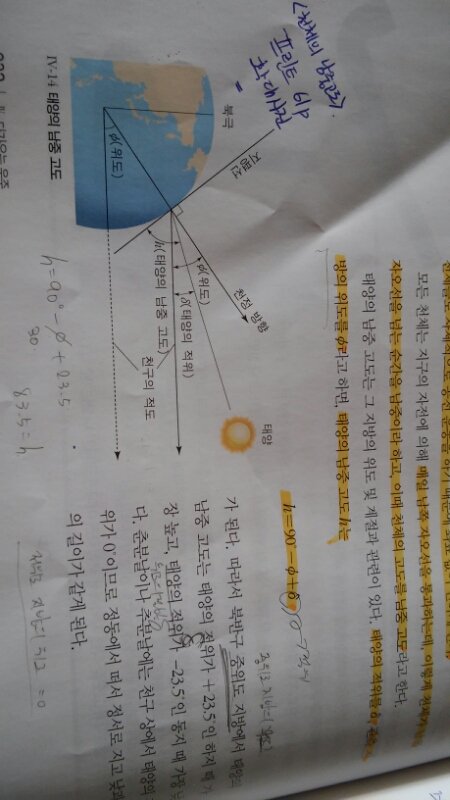 모든 천체는 지구의 자전에 의해 매일 남북 자오선을 통과하는데, 이렇게 천체가
자오선을 넘는 순간을 남중이라 하고, 이때 천체의 고도를 남중 고도라고 한다.
태양의 남중 고도는 그 지방의 위도 및 계절과 관련이 있다. 태양의 적위를 δ, 관측
방의 위도를 φ라고 하면, 태양의 남중 고도 h는
h=90°-φ+δ
가 된다. 따라서 북반구 중위도 지방에서 태양의
남중 고도는 태양의 적위가 +23.5°인 하지 때 가
장 높고, 태양의 적위가 -23.5°인 동지 때 가장 낮
다. 춘분날이나 추분날에는 천구 상에서 태양의
위가 0°이므로 정동에서 떠서 정서로 지고 낮과
의 길이가 같게 된다.
<천체의 남중고도>
프린트 61p
북극
지평선
φ(위도)
φ(위도)
천정 방향
h(태양의 남중 고도)
δ(태양의 적위)
천구의 적도
태양
IV-14 태양의 남중 고도
h=90°-φ+23.5
30
83.5=h
=0